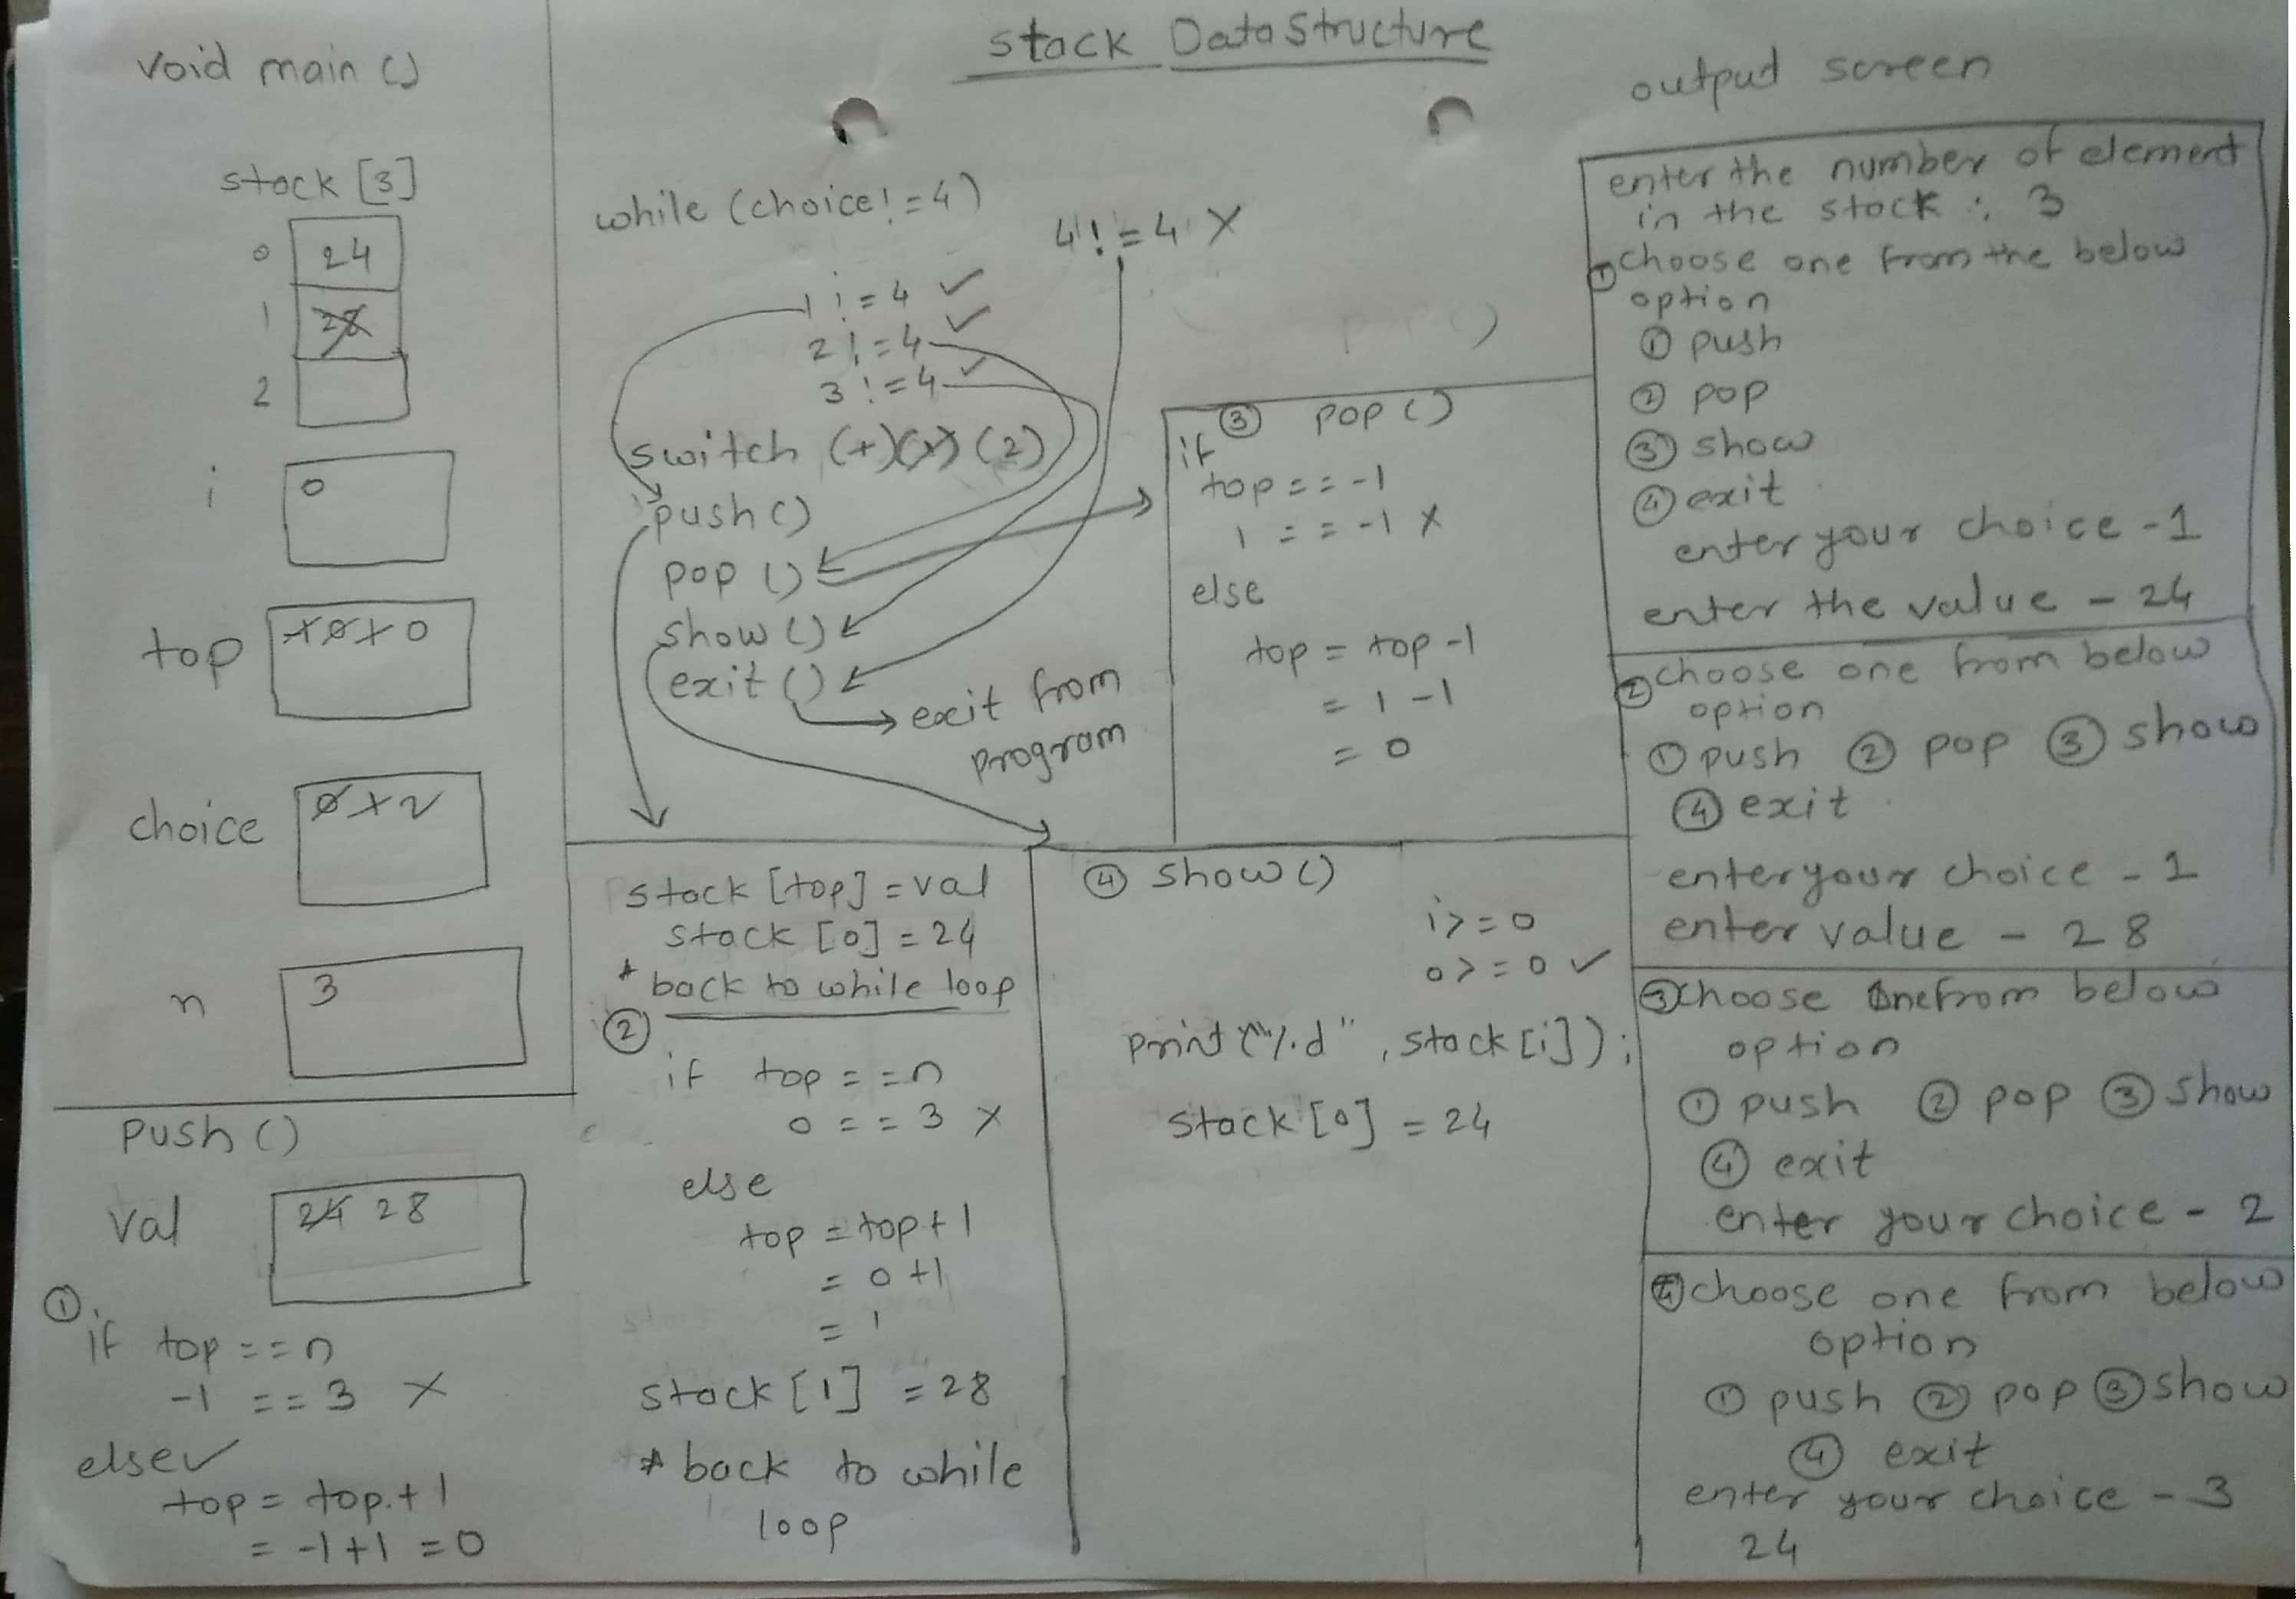 stack Data Structure
void main ()
stack [3]
0 24
1 28
2
i 0
top 0
choice 2
n 3
push ()
val 24 28
①
if top == n
-1 == 3 X
else ✓
top = top + 1
= -1 + 1 = 0
while (choice != 4)
1 != 4 ✓
2 != 4 ✓
3 != 4 ✓
4 != 4 X
switch (1) (1) (2)
push ()
pop ()
show ()
exit ()
exit from
program
stack [top] = val
stack [0] = 24
* back to while loop
②
if top == n
0 == 3 X
else
top = top + 1
= 0 + 1
= 1
stack [1] = 28
* back to while
loop
③ pop ()
if
top == -1
1 == -1 X
else
top = top - 1
= 1 - 1
= 0
④ show ()
i >= 0
0 >= 0 ✓
print ("%d", stack [i]);
stack [0] = 24
output screen
enter the number of element
in the stock : 3
① choose one from the below
option
① push
② pop
③ show
④ exit
enter your choice - 1
enter the value - 24
② choose one from below
option
① push ② pop ③ show
④ exit
enter your choice - 1
enter value - 28
③ choose one from below
option
① push ② pop ③ show
④ exit
enter your choice - 2
④ choose one from below
option
① push ② pop ③ show
④ exit
enter your choice - 3
24